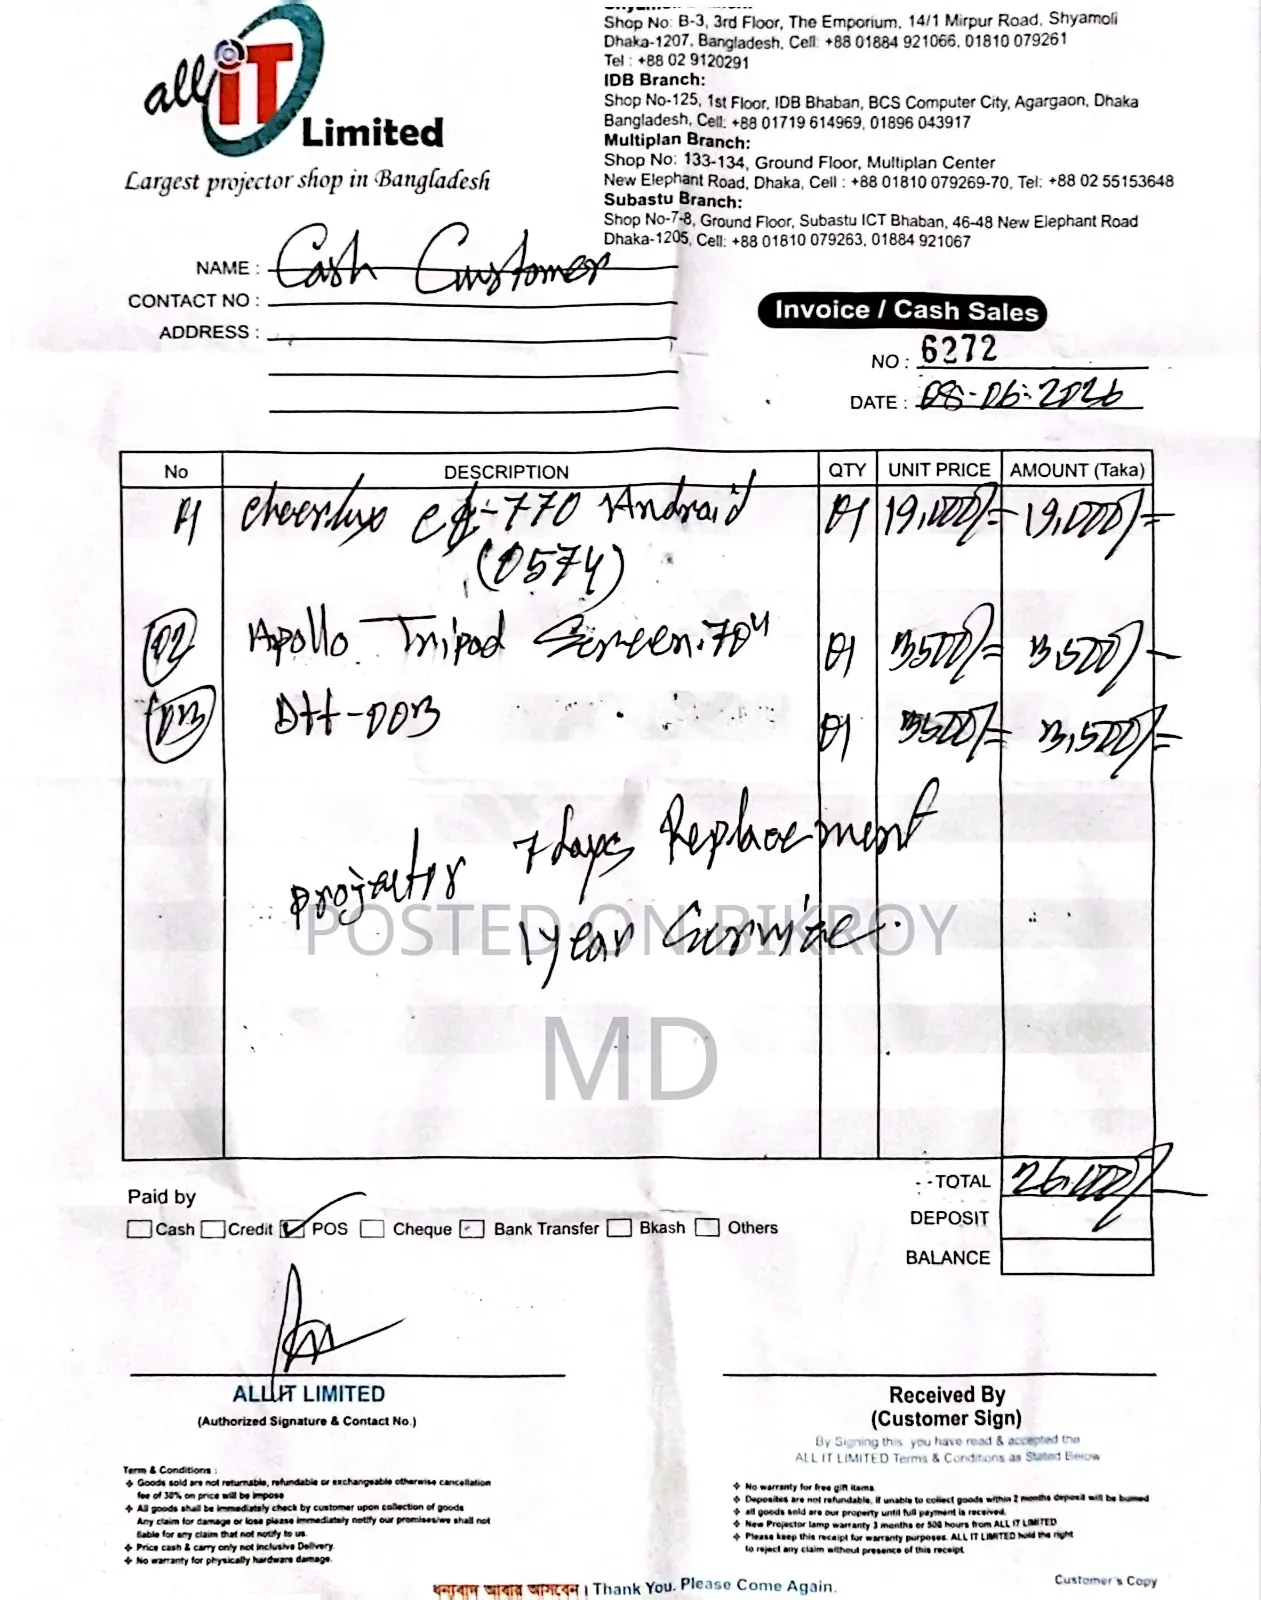 all IT Limited
Largest projector shop in Bangladesh
Shop No: B-3, 3rd Floor, The Emporium, 14/1 Mirpur Road, Shyamoli
Dhaka-1207, Bangladesh, Cell: +88 01884 921066, 01810 079261
Tel : +88 02 9120291
IDB Branch:
Shop No-125, 1st Floor, IDB Bhaban, BCS Computer City, Agargaon, Dhaka
Bangladesh, Cell: +88 01719 614969, 01896 043917
Multiplan Branch:
Shop No: 133-134, Ground Floor, Multiplan Center
New Elephant Road, Dhaka, Cell : +88 01810 079269-70, Tel: +88 02 55153648
Subastu Branch:
Shop No-7-8, Ground Floor, Subastu ICT Bhaban, 46-48 New Elephant Road
Dhaka-1205, Cell: +88 01810 079263, 01884 921067
NAME : Cash Customer
CONTACT NO :
ADDRESS :
Invoice / Cash Sales
NO : 6272
DATE : 08-06-2026
No DESCRIPTION QTY UNIT PRICE AMOUNT (Taka)
01 Cheerlux 770 Android 01 19,000/= 19,000/=
(0574)
02 Apollo Tripod Screen 70" 01 3500/= 3,500/-
03 003 01 3500/= 3,500/=
Projector 7 days Replacement
1 year Service.
POSTED ON BIKROY
MD
TOTAL 26,000/-
DEPOSIT
BALANCE
Paid by
Cash Credit POS Cheque Bank Transfer Bkash Others
ALL IT LIMITED
(Authorized Signature & Contact No.)
Received By
(Customer Sign)
By Signing this, you have read & accepted the
ALL IT LIMITED Terms & Conditions as Stated Below
Term & Conditions :
Goods sold are not returnable, refundable or exchangeable otherwise cancellation
fee of 30% on price will be impose
All goods shall be immediately check by customer upon collection of goods
Any claim for damage or lose please immediately notify our promises/we shall not
liable for any claim that not notify to us.
Price cash & carry only not inclusive Delivery.
No warranty for physically hardware damage.
No warranty for free gift items
Deposites are not refundable, if unable to collect goods within 2 months deposit will be burned
all goods sold are our property until full payment is received.
New Projector lamp warranty 3 months or 500 hours from ALL IT LIMITED
Please keep this receipt for warranty purposes. ALL IT LIMITED hold the right
to reject any claim without presence of this receipt.
Customer's Copy
ধন্যবাদ আবার আসবেন । Thank You. Please Come Again.